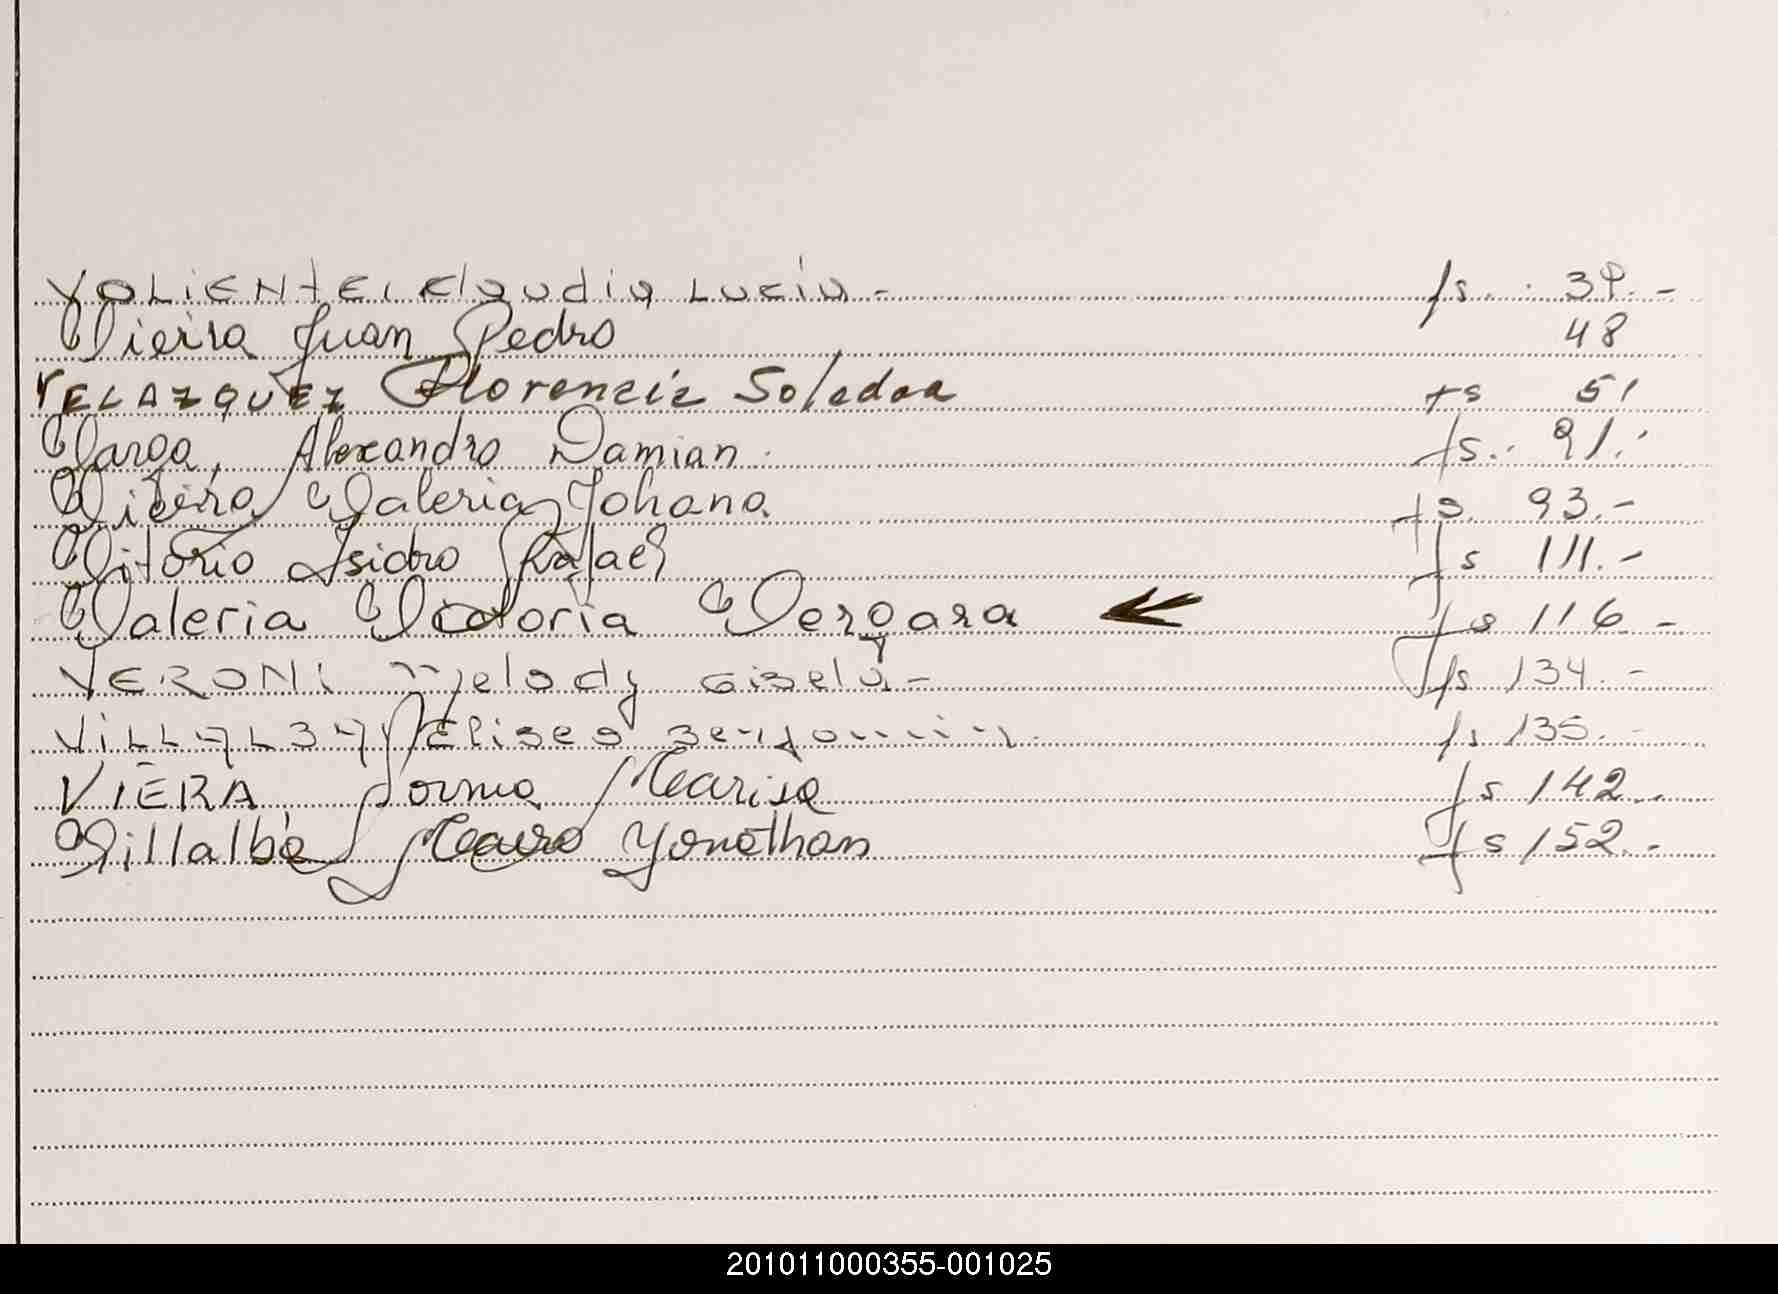 VALIENTE, Claudia Lucia - fs. 39.-
Vieira Juan Pedro 48
VELAZQUEZ Florencia Soledad fs 51
Varga, Alexandro Damian. fs. 91.-
Vieira Valeria Johana fs. 93.-
Vitorio Isidro Rafael fs 111.-
Valeria Victoria Vergara fs 116.-
VERONI Melody Gisela - fs 134.-
VILLALBA, Eliseo Benjamin. fs 135.-
VIERA, Norma Marisa fs 142.-
Villalba, Mauro Yonathan fs 152.-
201011000355-001025